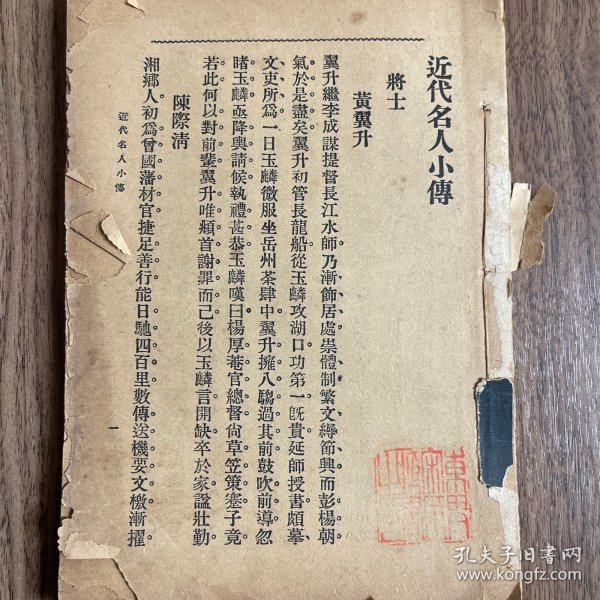 近代名人小傳
將士
黃翼升
翼升繼李成謀提督長江水師。乃漸飾居處崇體制繁文縟節興而彭楊朝
氣於是盡矣翼升初管長龍船從玉麟攻湖口功第一旣貴延師授書頗摹
文吏所爲一日玉麟微服坐岳州茶肆中翼升擁八騶過其前鼓吹前導忽
睹玉麟亟降輿請候執禮甚恭玉麟嘆曰楊厚菴官總督尙草笠策蹇子竟
若此何以對前輩翼升唯頫首謝罪而已後以玉麟言開缺卒於家諡壯勤
陳際淸
湘鄉人初爲曾國藩材官捷足善行能日馳四百里數傳送機要文檄漸擢
近代名人小傳
一
孔夫子旧書网
www.kongfz.com